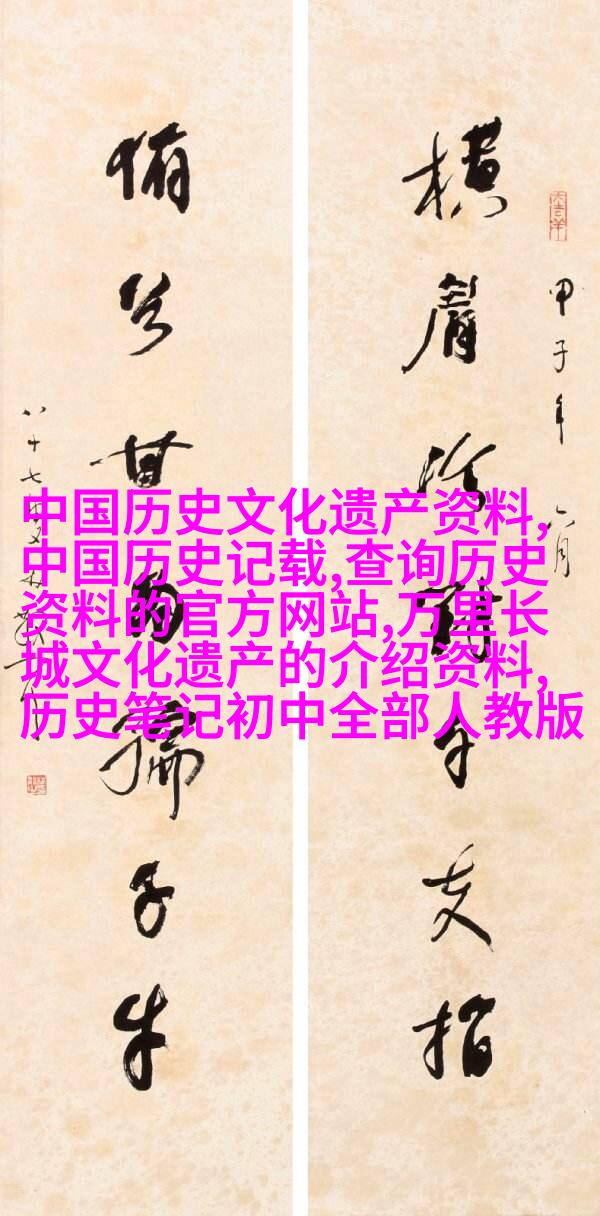 橫眉冷對千夫指
甲子年
俯首甘為孺子牛
八十七
大吉羊
中国历史文化遗产资料,
中国历史记载,查询历史
资料的官方网站,万里长
城文化遗产的介绍资料,
历史笔记初中全部人教版